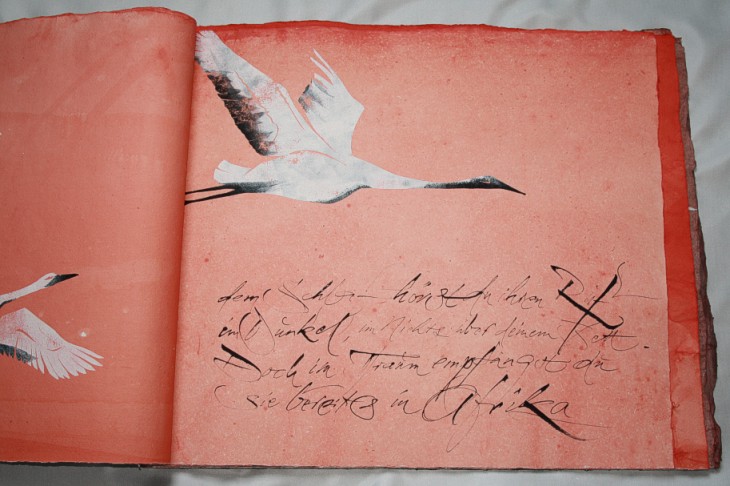 dem Schlaf hörst du ihren Ruf
im Dunkel, im Nichts über deinem Bett.
Doch im Traum empfängst du
sie bereits in Afrika